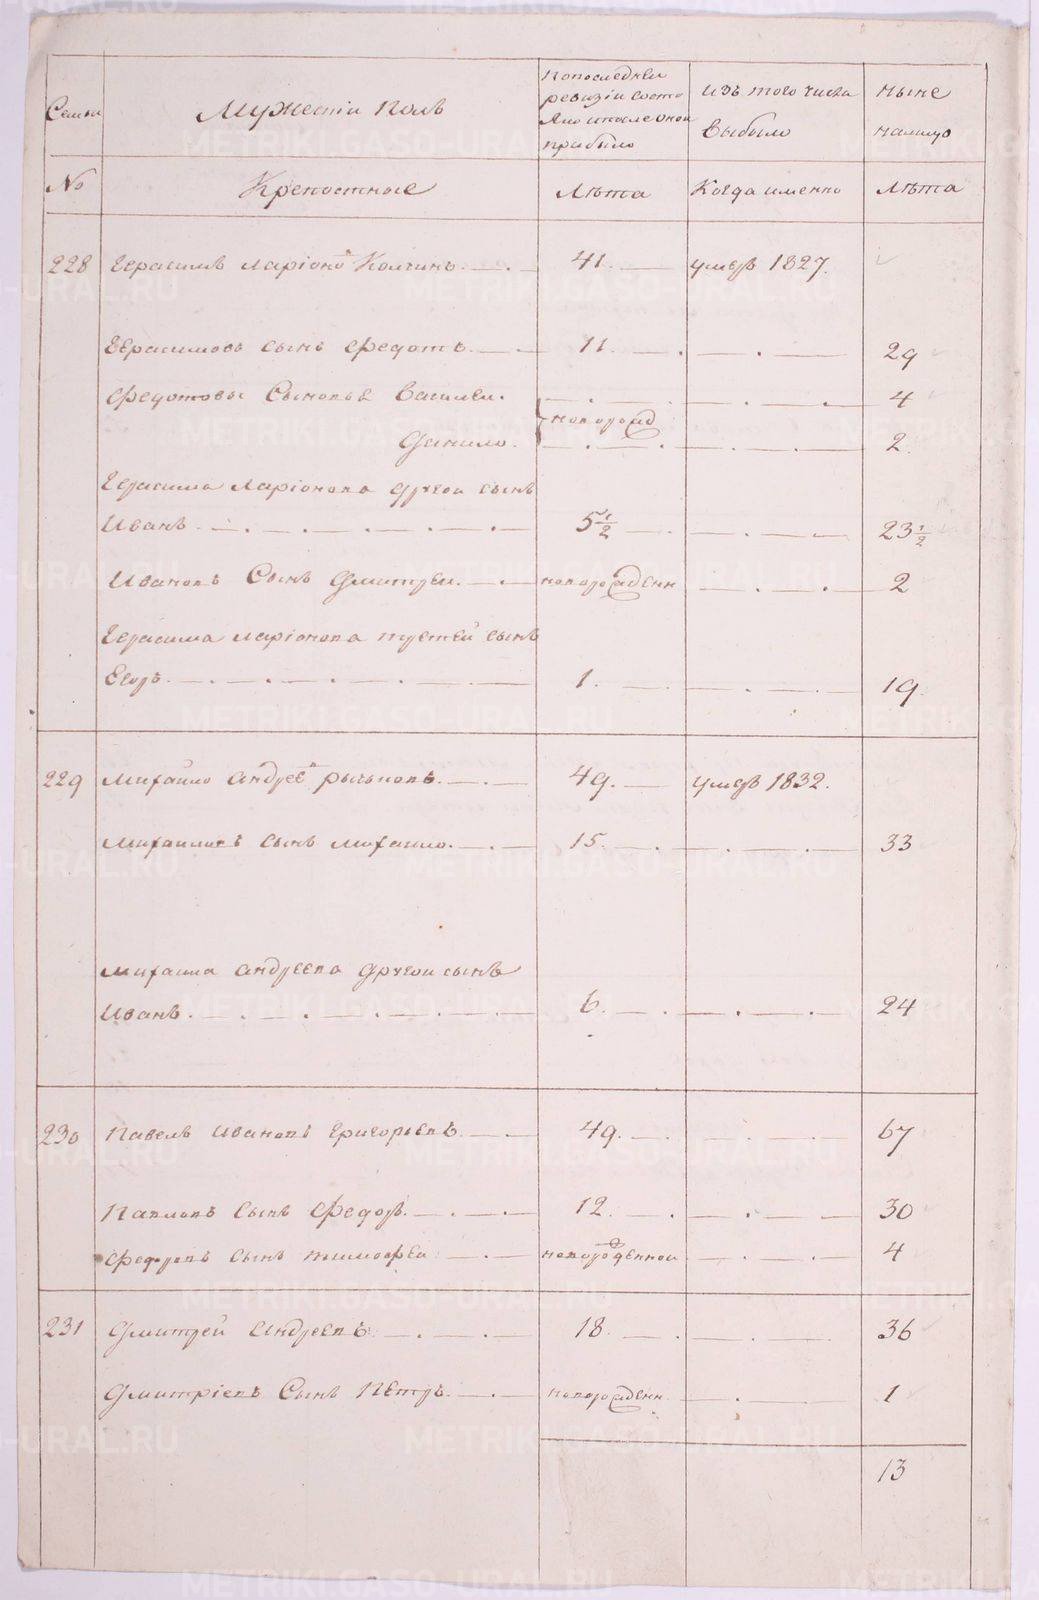 Семьи
Мужескiй полъ
Напоследней
ревизiи состо
яло ипосле оной
прибыло
изъ того числа
выбыло
ныне
налицо
No
Крепостные
Лѣта
Когда именно
Лѣта
228 Герасимъ Ларiоновъ Колчинъ. 41. умеръ 1827.
Герасимовъ сынъ Федотъ. 11. 29
Федотовы Сыновья Василей. 4
новорожд
Данило. 2.
Герасима Ларiонова другой сынъ
Иванъ. 5 1/2 23 1/2
Ивановъ Сынъ Дмитрей. новорожденн 2
Герасима Ларiонова третей сынъ
Егоръ. 1. 19.
229 Михайло Андреевъ 49. умеръ 1832.
Михаиловъ сынъ Михаило. 15. 33
Михаила Андреева другой сынъ
Иванъ. 6. 24
230 Павелъ Ивановъ Григорьевъ. 49. 67
Павловъ Сынъ Федоръ. 12. 30
Федоровъ Сынъ Тимофей новорожденной 4
231 Дмитрей Андреевъ. 18. 36
Дмитрiевъ Сынъ Петръ. новорожденн. 1
13
METRIKI.GASO-URAL.RU